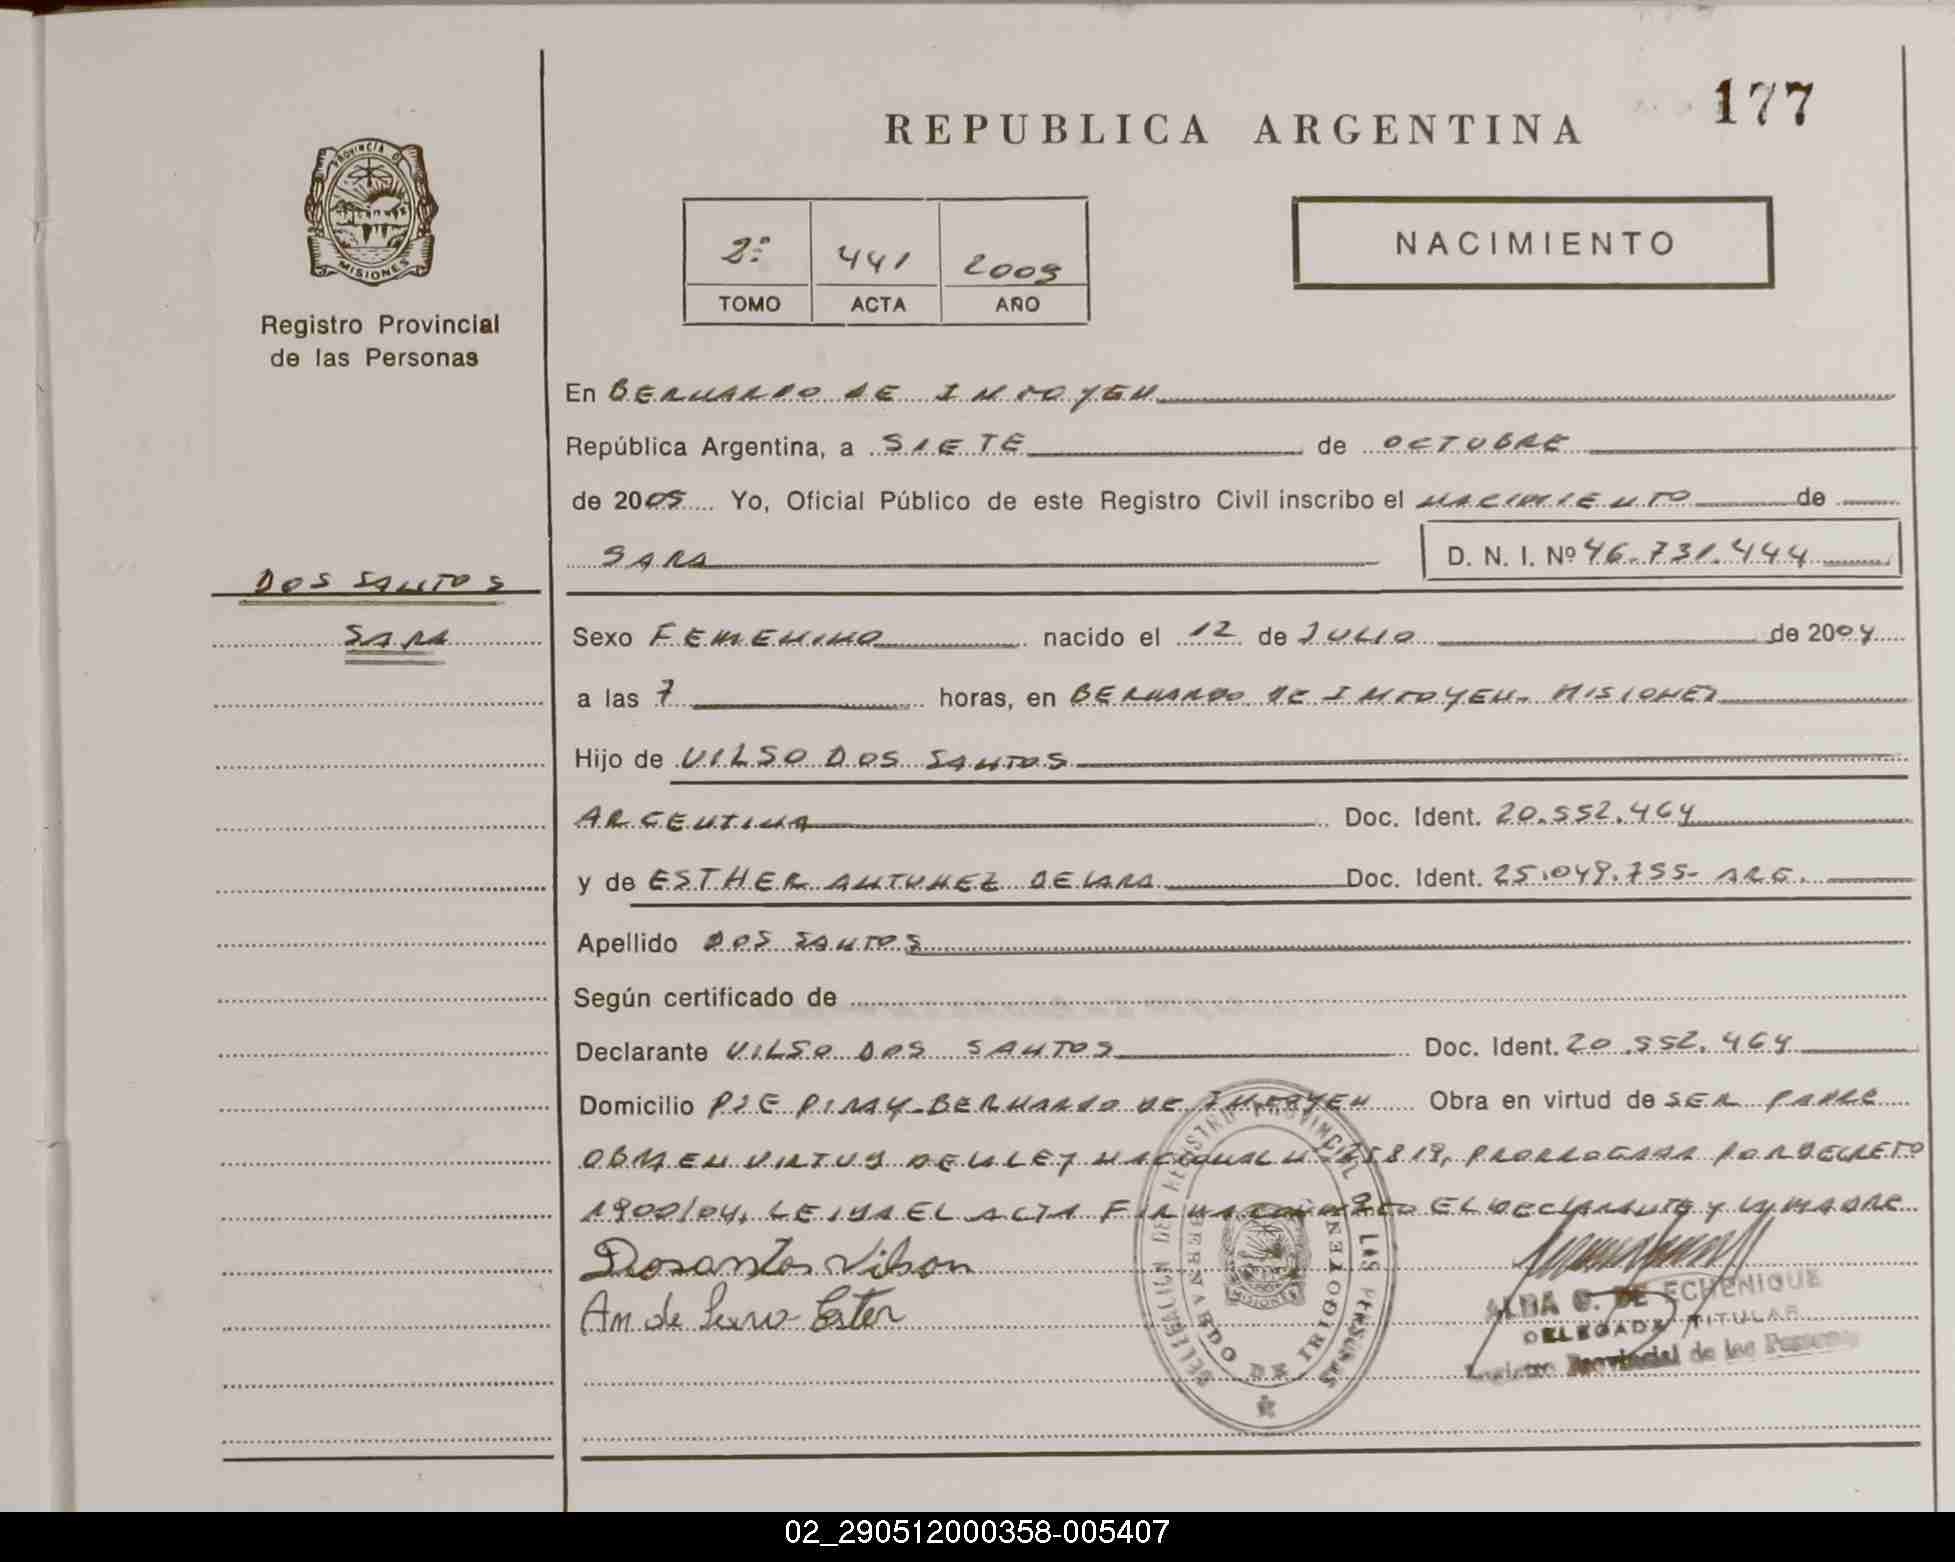 177
REPUBLICA ARGENTINA
PROVINCIA DE
MISIONES
Registro Provincial
de las Personas
2º 441 2005
TOMO ACTA AÑO
NACIMIENTO
En BERNARDO DE IRIGOYEN
República Argentina, a SIETE de OCTUBRE
de 2005 Yo, Oficial Público de este Registro Civil inscribo el NACIMIENTO de
SARA D. N. I. Nº 46.731.444
DOS SANTOS
SARA
Sexo FEMENINO nacido el 12 de JULIO de 2004
a las 7 horas, en BERNARDO DE IRIGOYEN. MISIONES
Hijo de VILSO DOS SANTOS
ARGENTINA Doc. Ident. 20.552.464
y de ESTHER ANTUNEZ DE LARA Doc. Ident. 25.049.755- ARG.
Apellido DOS SANTOS
Según certificado de
Declarante VILSO DOS SANTOS Doc. Ident. 20.552.464
Domicilio PJE PIRAY-BERNARDO DE IRIGOYEN Obra en virtud de SER PADRE
OBRA EN VIRTUD DE LA LEY NACIONAL Nº 25819, PRORROGADA POR DECRETO
1900/04, LEIDA EL ACTA FIRMA EL DECLARANTE Y LA MADRE
Dosantos Vilson
Ester
DELEGACION DEL REGISTRO PROVINCIAL DE LAS PERSONAS
BERNARDO DE IRIGOYEN
MISIONES
ALBA G. DE ECHENIQUE
DELEGADA TITULAR
Registro Provincial de las Personas
02_290512000358-005407